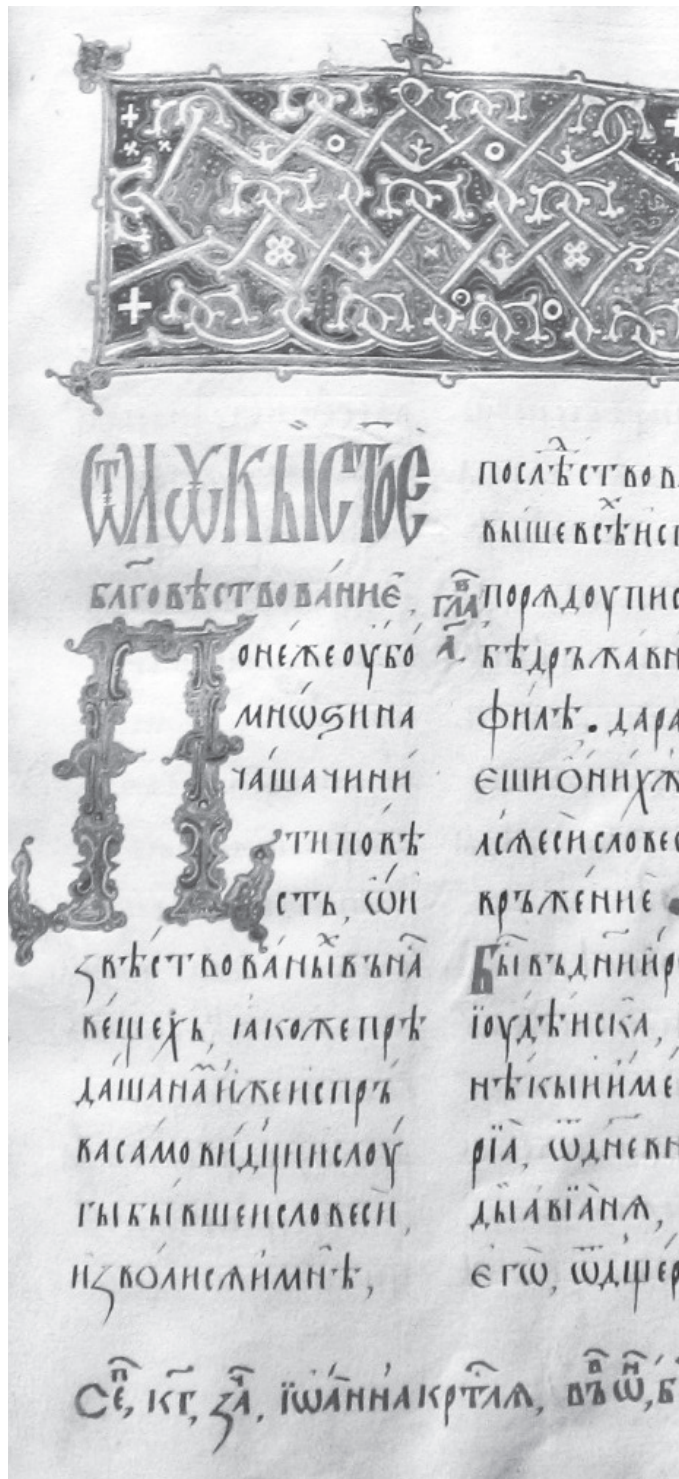 ѾЛꙊКЫ́СТ҃ОЕ
БЛАГОВѢСТВОВА́НИЄ,
ПОНЕ́ЖЕОУ҆БО̀
МНѠѕИНА
ЧАШАЧИНИ́
ТИПОВѢ́
СТЬ, Ѡ҆И
ꙁВѢ́СТВОВА́НЫ́ⷯВЪНА҃
ВЕ́ЩЕХЬ, ꙖКОЖЕПРѢ
ДА́ШАНА́ИЖЕИСПРЪ́
ВАСА́МОВИ́ДЦИИСЛОУ́
ГЫБЫ́ВШЕИСЛОВЕСЍ,
ИꙁВО́ЛИСѦИМНѢ̀,
ПОСЛѢⷣСТВОВ
ВЫ́ШЕВСѢⷯИСП
ГЛАⷡ҇ А҃
ПОРѦДОУПИС
ВѢДРЪЖА́ВН
ФИ́ЛѢ. ДАРА
ЄШИѺНИ́ХЖ
ЛСѦЕСЍСЛОВЕС
КРЪЖЕ́НИЕ.
БЫ́ВЪДНИИ҆Р
ЇОУДѢ́ИСКА,
НѢ́КЫИИ҆МЕ
РЇА, ѾДНЕВН
ДЫ́АВЇА́НѦ,
ЄГѠ̀, ѾДЩЕР
СЕⷫ҇, КГ҃, ꙁАⷱ҇, Ї҆ѠА́ННАКРТ҃ЛѦ, ВЪⷡ҇ѠⷩБ